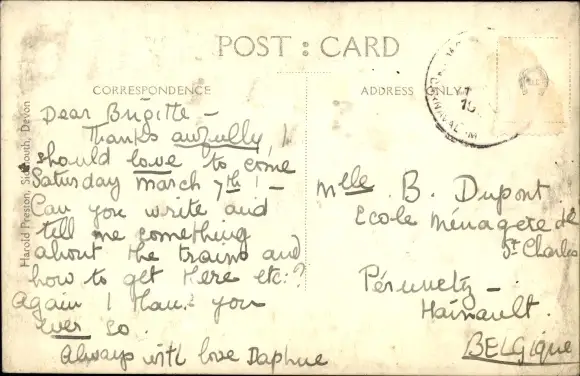 POST : CARD
CORRESPONDENCE
ADDRESS ONLY
Harold Preston, Sidmouth, Devon
Dear Brigitte –
Thanks awfully, I
should love to come
Saturday March 7th ! –
Can you write and
tell me something
about the trains and
how to get there etc: ?
Again I thank you
ever so.
Always with love Daphne
Mlle B. Dupont
Ecole Ménagère de
St Charles
Péruwelz –
Hainault.
BELGIQUE